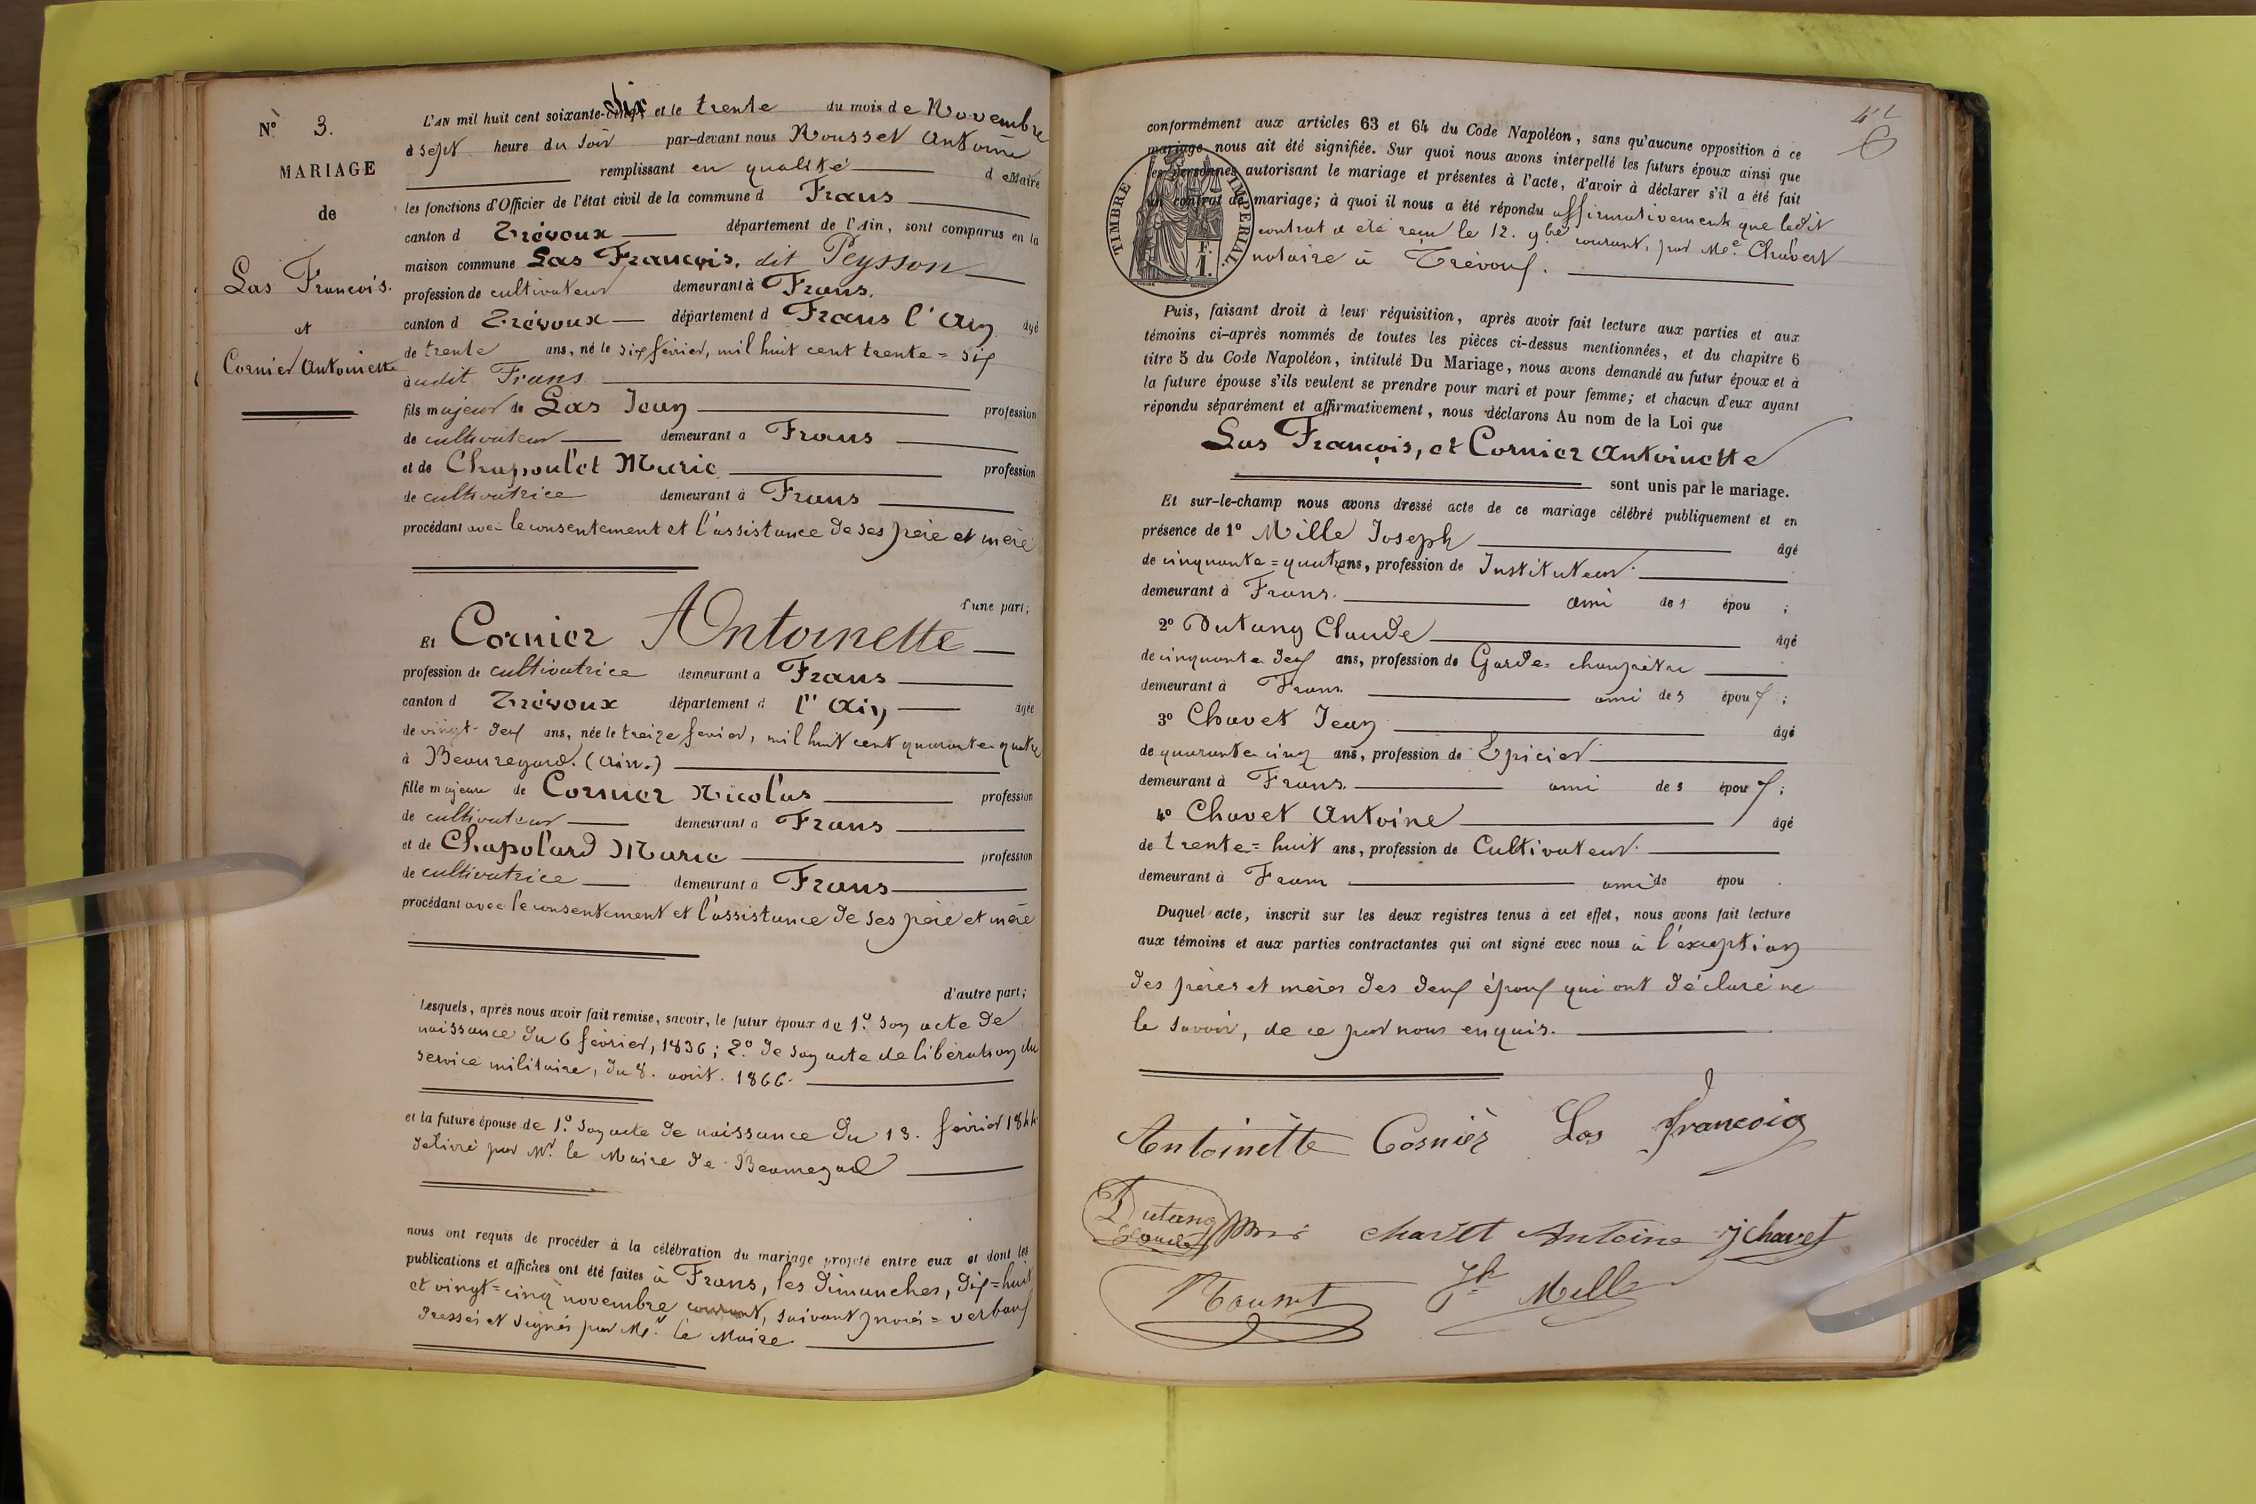 N° 3.
MARIAGE
de
Las François.
et
Cornier Antoinette
L'AN mil huit cent soixante-six et le trente du mois de Novembre
à sept heure du soir par-devant nous Rousset Antoine
remplissant en qualité de Maire
les fonctions d'Officier de l'état civil de la commune d Frans
canton d Trévoux département de l'Ain, sont comparus en la
maison commune Las François, dit Peysson
profession de cultivateur demeurant à Frans.
canton d Trévoux département d Frans l'Ain âgé
de trente ans, né le six février, mil huit cent trente=six
audit Frans
fils majeur de Las Jean profession
de cultivateur demeurant à Frans
et de Chapoulet Marie profession
de cultivatrice demeurant à Frans
procédant avec le consentement et l'assistance de ses père et mère
d'une part;
Et Cornier Antoinette
profession de cultivatrice demeurant à Frans
canton d Trévoux département d l'Ain âgée
de vingt-deux ans, née le treize fevier, mil huit cent quarante-quatre
à Beauregard. (Ain.)
fille majeure de Cornier Nicolas profession
de cultivateur demeurant à Frans
et de Chapolard Marie profession
de cultivatrice demeurant à Frans
procédant avec le consentement et l'assistance de ses père et mère
d'autre part;
Lesquels, après nous avoir fait remise, savoir, le futur époux de 1°. son acte de
naissance du 6 février, 1836; 2°. de son acte de libération du
service militaire, du 8. août. 1866.
et la future épouse de 1°. son acte de naissance du 13. février 1844.
delivré par Mr. le Maire de Beauregard
nous ont requis de procéder à la célébration du mariage projeté entre eux et dont les
publications et affiches ont été faites à Frans, les dimanches, dix=huit
et vingt=cinq novembre courant, suivant procès=verbaux
dressés et signés par Mr. le Maire
conformément aux articles 63 et 64 du Code Napoléon, sans qu'aucune opposition à ce
mariage nous ait été signifiée. Sur quoi nous avons interpellé les futurs époux ainsi que
les personnes autorisant le mariage et présentes à l'acte, d'avoir à déclarer s'il a été fait
un contrat de mariage; à quoi il nous a été répondu affirmativement que ledit
contrat a été reçu le 12. 9bre courant, par Me. Chuvert
notaire à Trévoux.
TIMBRE IMPERIAL
F.
1.
Puis, faisant droit à leur réquisition, après avoir fait lecture aux parties et aux
témoins ci-après nommés de toutes les pièces ci-dessus mentionnées, et du chapitre 6
titre 5 du Code Napoléon, intitulé Du Mariage, nous avons demandé au futur époux et à
la future épouse s'ils veulent se prendre pour mari et pour femme; et chacun d'eux ayant
répondu séparément et affirmativement, nous déclarons Au nom de la Loi que
Las François, et Cornier Antoinette
sont unis par le mariage.
Et sur-le-champ nous avons dressé acte de ce mariage célébré publiquement et en
présence de 1° Mille Joseph âgé
de cinquante=quatre ans, profession de Instituteur.
demeurant à Frans. ami de s épou ;
2° Dutang Claude âgé
de cinquante deux ans, profession de Garde-champêtre
demeurant à Frans. ami de s époux;
3° Chavet Jean âgé
de quarante cinq ans, profession de Epicier
demeurant à Frans. ami de s époux;
4° Chavet Antoine âgé
de trente=huit ans, profession de Cultivateur.
demeurant à Frans ami de épou .
Duquel acte, inscrit sur les deux registres tenus à cet effet, nous avons fait lecture
aux témoins et aux parties contractantes qui ont signé avec nous à l'exception
des pères et mères des deux époux qui ont déclaré ne
le savoir, de ce par nous enquis.
Antoinètte Cornièr Las François
Dutang
Claude
chavet Antoine j chavet
Rousset Jh Mille